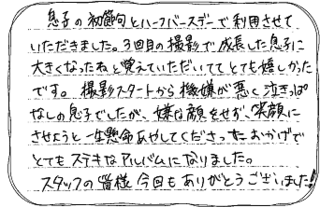 息子の初節句とハーフバースデーで利用させて
いただきました。3回目の撮影で成長した息子に
大きくなったねと覚えていただいてて とても嬉しかった
です。撮影スタートから機嫌が悪く泣きっぱ
なしの息子でしたが、嫌な顔をせず、笑顔に
させようと一生懸命あやしてくださったおかげで
とてもステキなアルバムになりました。
スタッフの皆様 今回も ありがとうございました!!